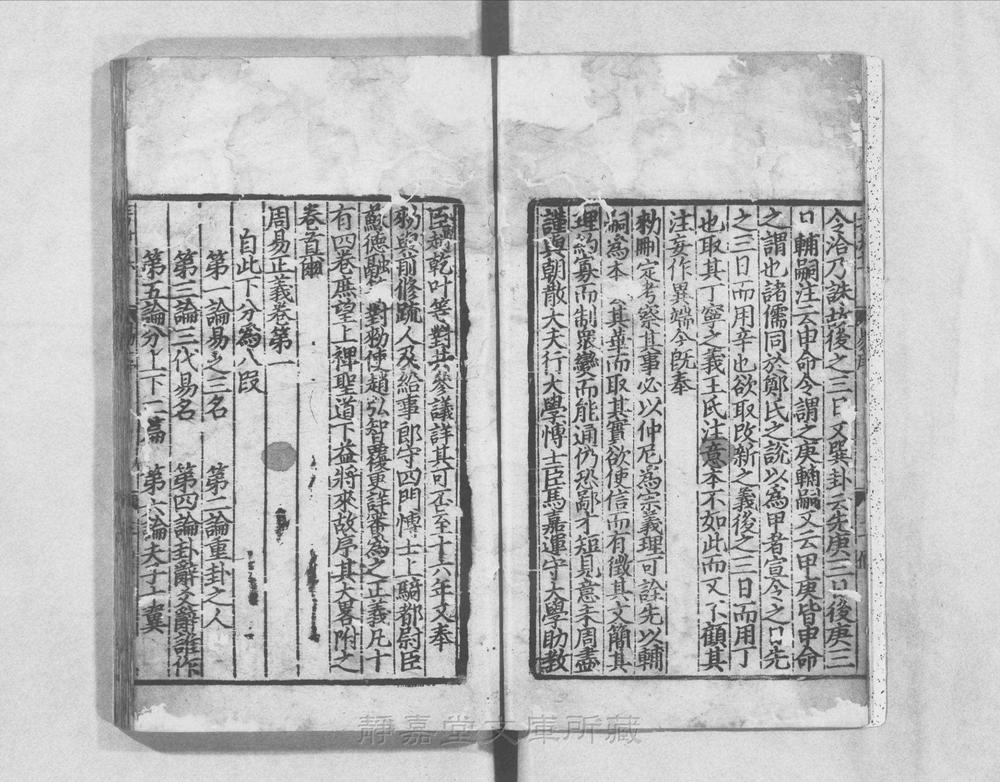 令洽乃誅故後之三日又巽卦云先庚三日後庚三
日輔嗣注云申命令謂之庚輔嗣又云甲庚皆申命
之謂也諸儒同於鄭氏之說以為甲者宣令之日先
之三日而用辛也欲取改新之義後之三日而用丁
也取其丁寧之義王氏注意本不如此而又不顧其
注妄作異端今既奉
勑刪定考察其事必以仲尼為宗義理可詮先以輔
嗣為本其華而取其實欲使信而有徵其文簡其
理約寡而制眾變而能通仍恐鄙才短見意未周盡
謹與朝散大夫行大學博士臣馬嘉運守大學助教
臣趙乾叶等對共參議詳其可否至十六年又奉
勑與前修疏人及給事郎守四門博士上騎都尉臣
蘇德融對勑使趙弘智覆更詳審為之正義凡十
有四卷庶望上裨聖道下益將來故序其大畧附之
卷首爾
周易正義卷第一
自此下分為八段
第一論易之三名 第二論重卦之人
第三論三代易名 第四論卦辭爻辭誰作
第五論分上下二篇 第六論夫子十翼
靜嘉堂文庫所藏